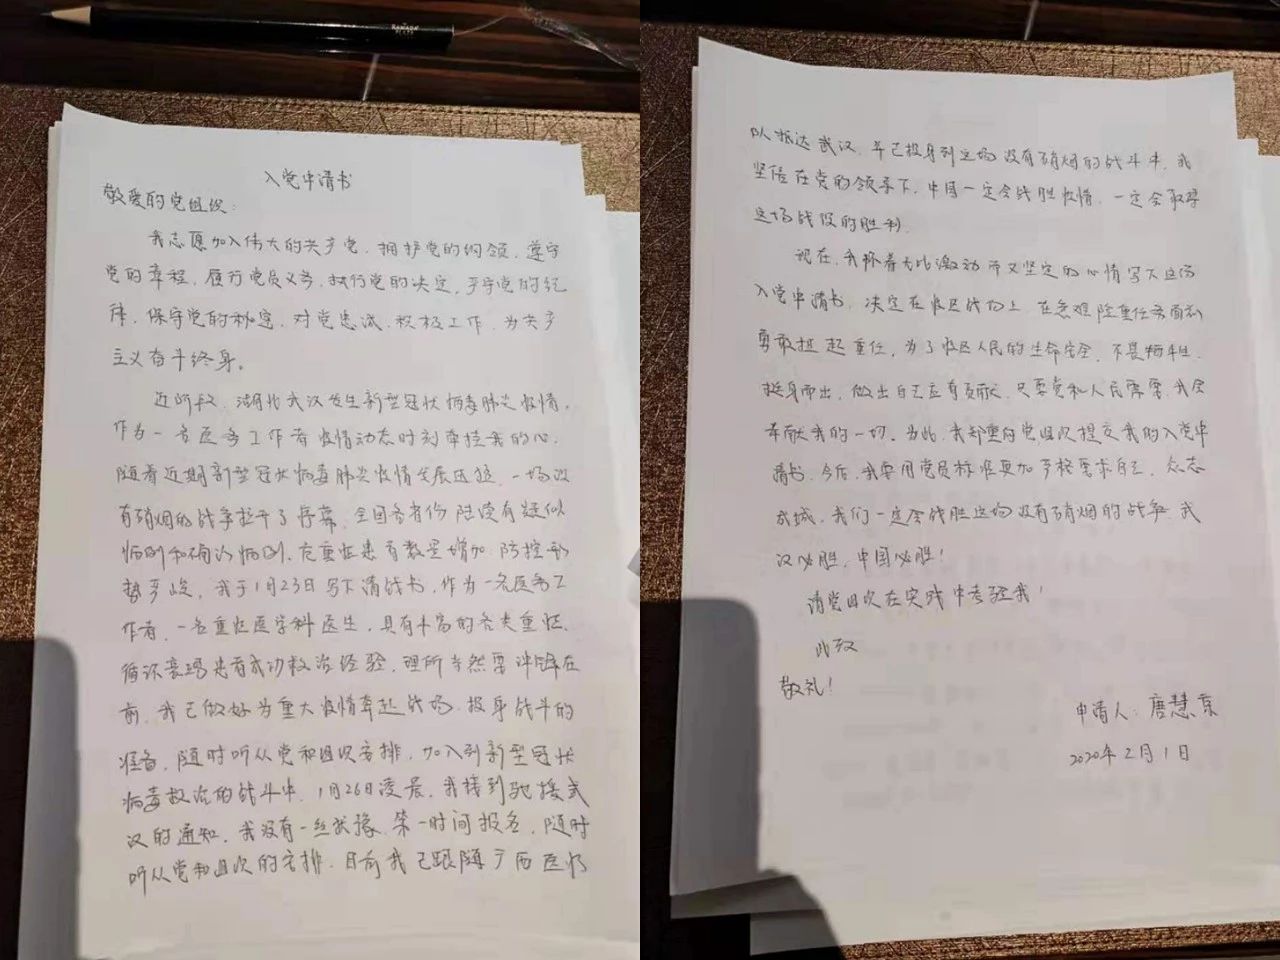 入党申请书
敬爱的党组织:
我志愿加入伟大的共产党,拥护党的纲领,遵守
党的章程,履行党员义务,执行党的决定,严守党的纪
律,保守党的秘密,对党忠诚,积极工作,为共产
主义奋斗终身。
近阶段,湖北武汉发生新型冠状病毒肺炎疫情,
作为一名医务工作者疫情动态时刻牵挂我的心,
随着近期新型冠状病毒肺炎疫情发展迅猛,一场没
有硝烟的战争拉开了序幕,全国各省份陆续有疑似
病例和确诊病例,危重症患者数量增加,防控形
势严峻,我于1月23日写下请战书,作为一名医务工
作者,一名重症医学科医生,具有丰富的各类重症、
循环衰竭患者成功救治经验,理所当然要冲锋在
前,我已做好为重大疫情奔赴战场,投身战斗的
准备,随时听从党和组织安排,加入到新型冠状
病毒救治的战斗中,1月26日凌晨,我接到驰援武
汉的通知,我没有一丝犹豫,第一时间报名,随时
听从党和组织的安排,目前我已跟随广西医疗
队抵达武汉,并已投身到这场没有硝烟的战斗中,我
坚信在党的领导下,中国一定会战胜疫情,一定会取得
这场战役的胜利.
现在,我怀着无比激动而又坚定的心情写下这份
入党申请书,决定在疫区战场上,在急难险重任务面前
勇敢担起重任,为了疫区人民的生命安全,不畏牺牲,
挺身而出,做出自己应有贡献,只要党和人民需要,我会
奉献我的一切,为此,我郑重向党组织提交我的入党申
请书,今后,我要用党员标准更加严格要求自己,众志
成城,我们一定会战胜这场没有硝烟的战争,武
汉必胜,中国必胜!
请党组织在实践中考验我!
此致
敬礼!
申请人:唐慧京
2020年2月1日